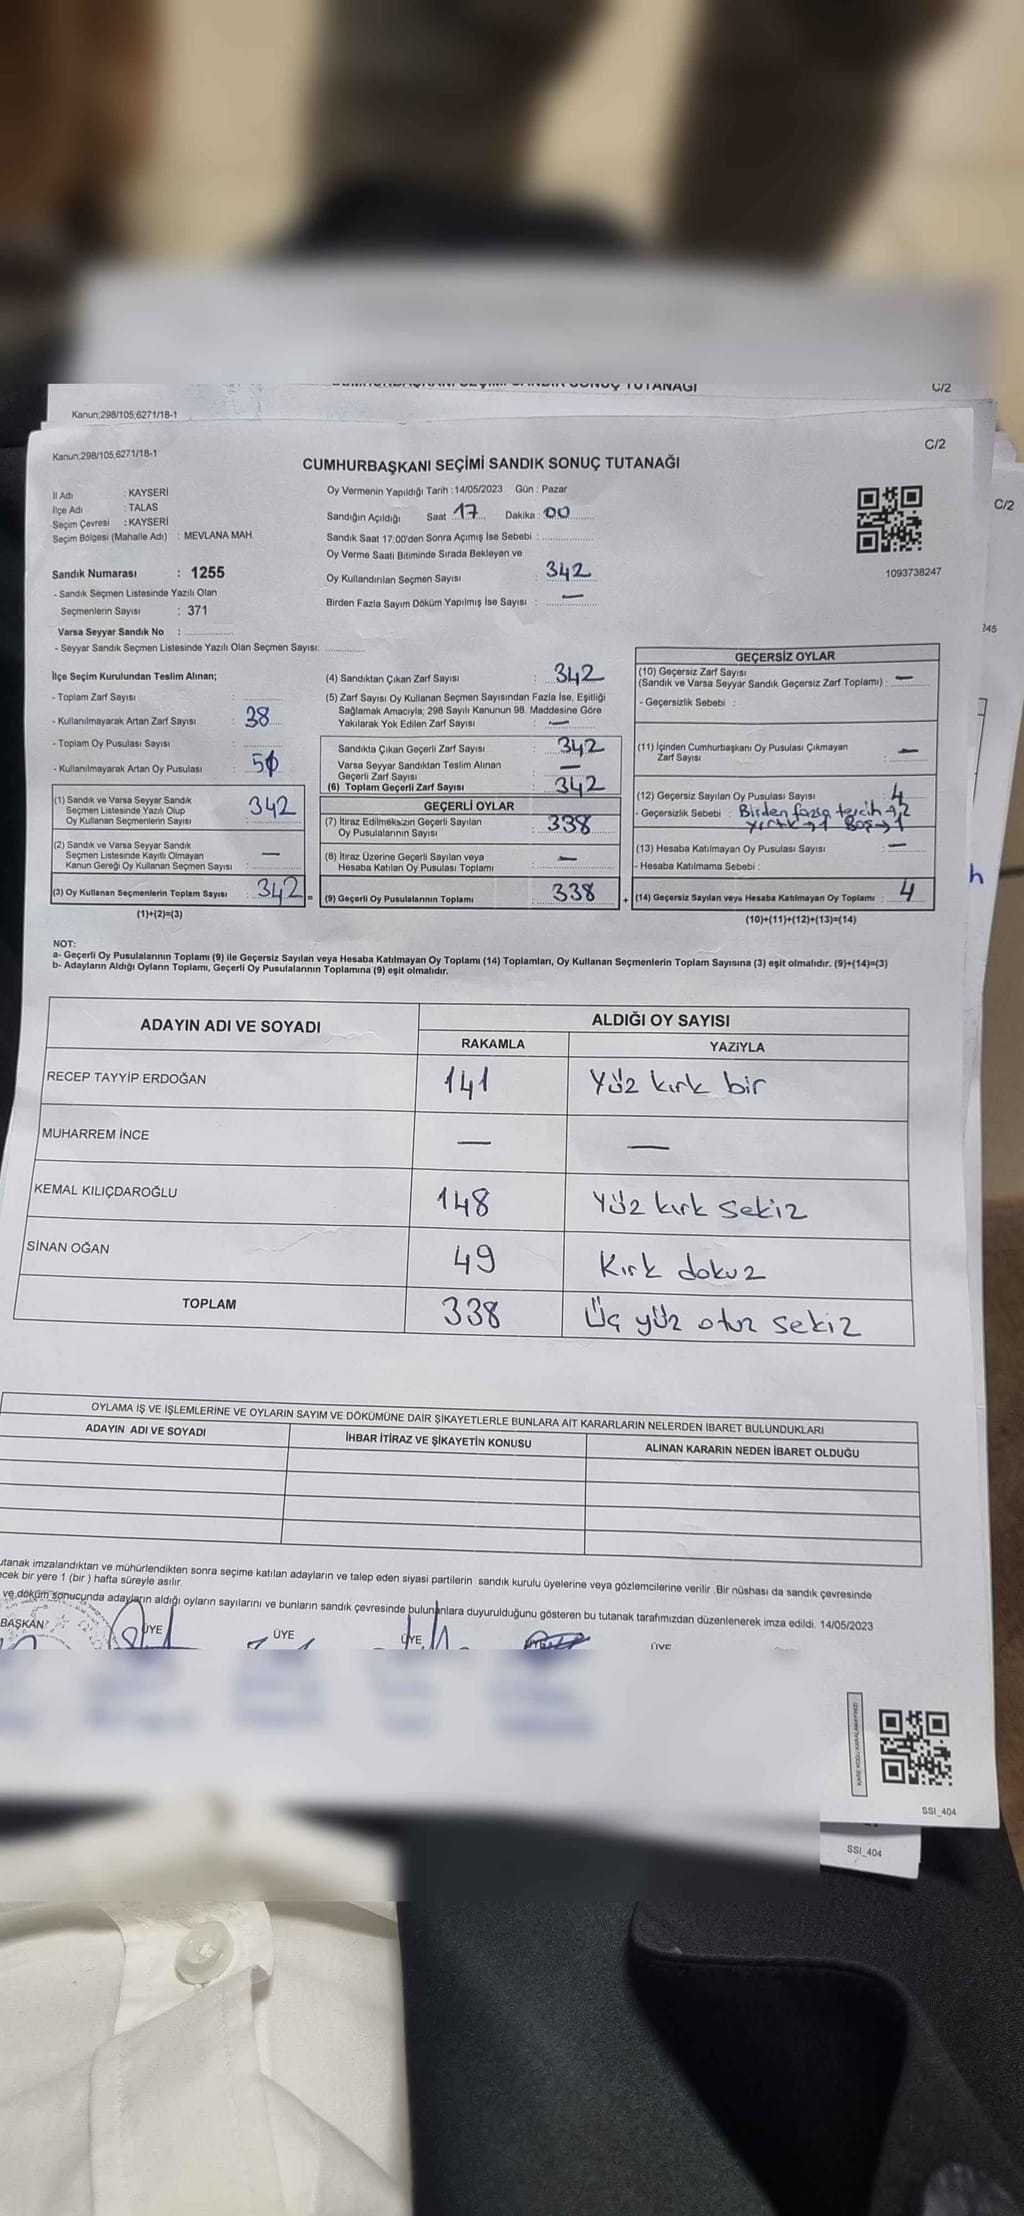 CUMHURBAŞKANI SEÇİMİ SANDIK SONUÇ TUTANAĞI
C/2
Kanun;298/105,6271/18-1
Kanun;298/105,6271/18-1
C/2
C/2
CUMHURBAŞKANI SEÇİMİ SANDIK SONUÇ TUTANAĞI
İl Adı : KAYSERİ
İlçe Adı : TALAS
Seçim Çevresi : KAYSERİ
Seçim Bölgesi (Mahalle Adı) : MEVLANA MAH.
Sandık Numarası : 1255
- Sandık Seçmen Listesinde Yazılı Olan
Seçmenlerin Sayısı : 371
Varsa Seyyar Sandık No :
- Seyyar Sandık Seçmen Listesinde Yazılı Olan Seçmen Sayısı:
Oy Vermenin Yapıldığı Tarih : 14/05/2023 Gün : Pazar
Sandığın Açıldığı Saat 17 Dakika : 00
Sandık Saat 17:00'den Sonra Açımış İse Sebebi :
Oy Verme Saati Bitiminde Sırada Bekleyen ve
Oy Kullandırılan Seçmen Sayısı : 342
Birden Fazla Sayım Döküm Yapılmış İse Sayısı : —
1093738247
245
İlçe Seçim Kurulundan Teslim Alınan;
- Toplam Zarf Sayısı :
- Kullanılmayarak Artan Zarf Sayısı : 38
- Toplam Oy Pusulası Sayısı :
- Kullanılmayarak Artan Oy Pusulası :
(1) Sandık ve Varsa Seyyar Sandık
Seçmen Listesinde Yazılı Olup
Oy Kullanan Seçmenlerin Sayısı : 342
(2) Sandık ve Varsa Seyyar Sandık
Seçmen Listesinde Kayıtlı Olmayan
Kanun Gereği Oy Kullanan Seçmen Sayısı : —
(3) Oy Kullanan Seçmenlerin Toplam Sayısı : 342 =
(1)+(2)=(3)
(4) Sandıktan Çıkan Zarf Sayısı : 342
(5) Zarf Sayısı Oy Kullanan Seçmen Sayısından Fazla İse, Eşitliği
Sağlamak Amacıyla; 298 Sayılı Kanunun 98. Maddesine Göre
Yakılarak Yok Edilen Zarf Sayısı : —
Sandıkta Çıkan Geçerli Zarf Sayısı : 342
Varsa Seyyar Sandıktan Teslim Alınan
Geçerli Zarf Sayısı : —
(6) Toplam Geçerli Zarf Sayısı : 342
GEÇERLİ OYLAR
(7) İtiraz Edilmeksizin Geçerli Sayılan
Oy Pusulalarının Sayısı : 338
(8) İtiraz Üzerine Geçerli Sayılan veya
Hesaba Katılan Oy Pusulası Toplamı : —
(9) Geçerli Oy Pusulalarının Toplamı : 338 +
GEÇERSİZ OYLAR
(10) Geçersiz Zarf Sayısı
(Sandık ve Varsa Seyyar Sandık Geçersiz Zarf Toplamı) : —
- Geçersizlik Sebebi :
(11) İçinden Cumhurbaşkanı Oy Pusulası Çıkmayan
Zarf Sayısı : —
(12) Geçersiz Sayılan Oy Pusulası Sayısı : 4
- Geçersizlik Sebebi : Birden fazla tercih → 2
Yırtık → 1 Boş → 1
(13) Hesaba Katılmayan Oy Pusulası Sayısı : —
- Hesaba Katılmama Sebebi :
(14) Geçersiz Sayılan veya Hesaba Katılmayan Oy Toplamı : 4
(10)+(11)+(12)+(13)=(14)
NOT:
a- Geçerli Oy Pusulalarının Toplamı (9) ile Geçersiz Sayılan veya Hesaba Katılmayan Oy Toplamı (14) Toplamları, Oy Kullanan Seçmenlerin Toplam Sayısına (3) eşit olmalıdır. (9)+(14)=(3)
b- Adayların Aldığı Oyların Toplamı, Geçerli Oy Pusulalarının Toplamına (9) eşit olmalıdır.
ADAYIN ADI VE SOYADI
ALDIĞI OY SAYISI
RAKAMLA YAZIYLA
RECEP TAYYİP ERDOĞAN 141 Yüz kırk bir
MUHARREM İNCE — —
KEMAL KILIÇDAROĞLU 148 Yüz kırk sekiz
SİNAN OĞAN 49 Kırk dokuz
TOPLAM 338 Üç yüz otuz sekiz
OYLAMA İŞ VE İŞLEMLERİNE VE OYLARIN SAYIM VE DÖKÜMÜNE DAİR ŞİKAYETLERLE BUNLARA AİT KARARLARIN NELERDEN İBARET BULUNDUKLARI
ADAYIN ADI VE SOYADI İHBAR İTİRAZ VE ŞİKAYETİN KONUSU ALINAN KARARIN NEDEN İBARET OLDUĞU
utanak imzalandıktan ve mühürlendikten sonra seçime katılan adayların ve talep eden siyasi partilerin sandık kurulu üyelerine veya gözlemcilerine verilir .Bir nüshası da sandık çevresinde
ecek bir yere 1 (bir ) hafta süreyle asılır.
ve döküm sonucunda adayların aldığı oyların sayılarını ve bunların sandık çevresinde bulunanlara duyurulduğunu gösteren bu tutanak tarafımızdan düzenlenerek imza edildi. 14/05/2023
BAŞKAN ÜYE ÜYE ÜYE ÜYE ÜYE
KARE KODU KARALAMAYINIZ!
SSI_404
SSI_404